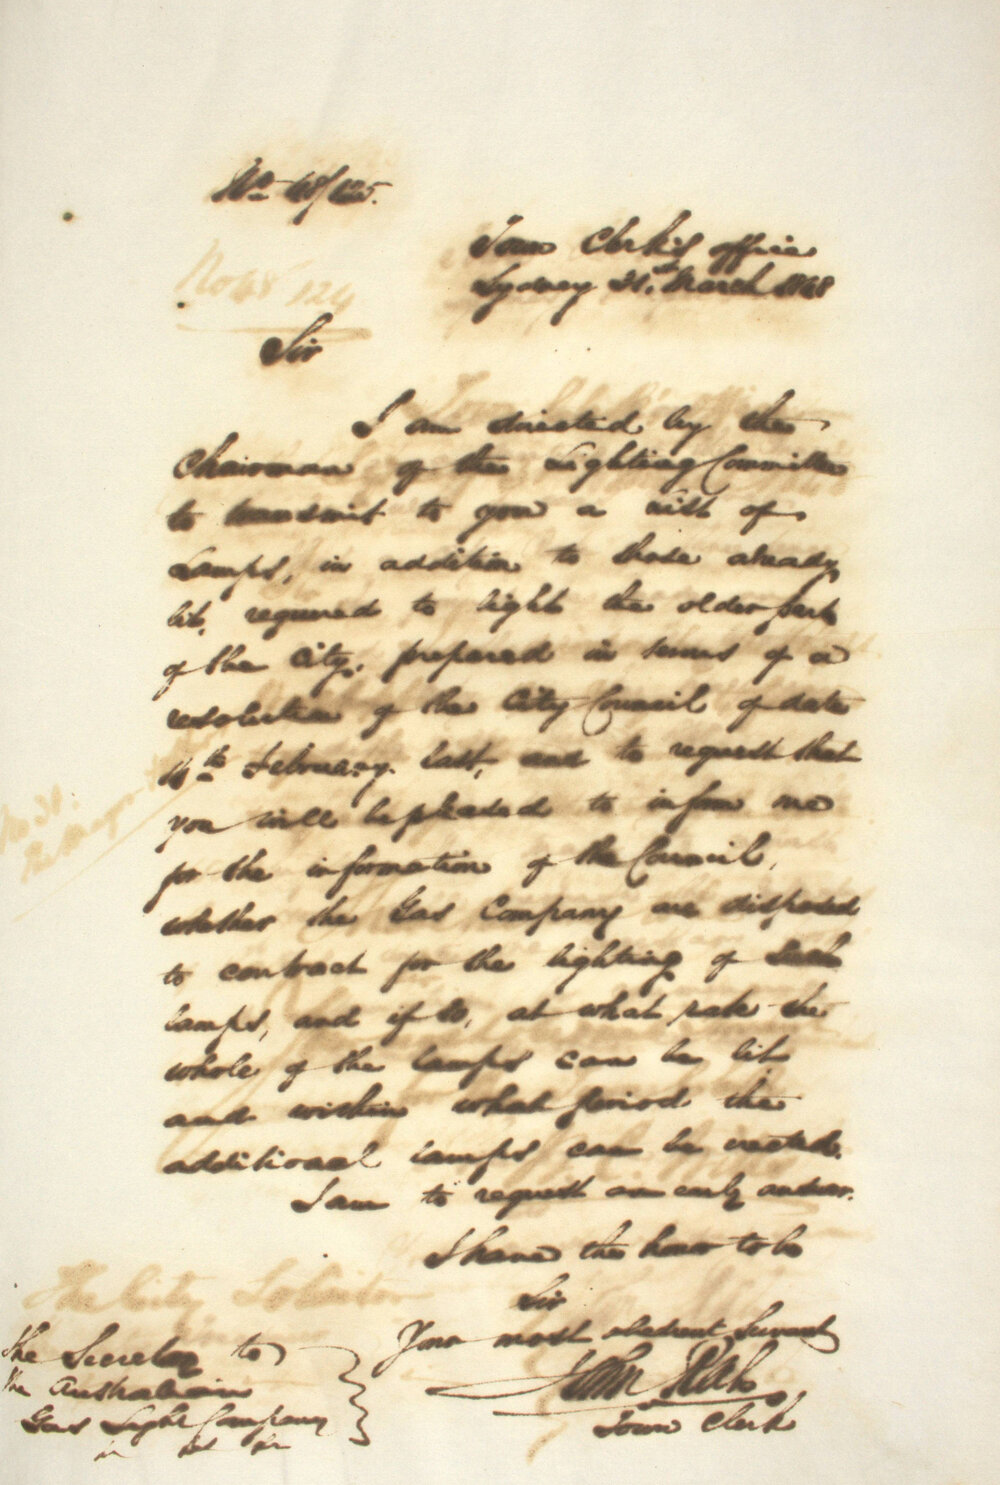 No 48/125.
Town Clerk's office
Sydney 21st March 1848
No 48 124
Sir
I am directed by the
Chairman of the Lighting Committee
to transmit to you a list of
Lamps, in addition to those already
lit, required to light the older part
of the City, prepared in terms of a
resolution of the City Council of date
14th February last, and to request that
you will be pleased to inform me
for the information of the Council,
whether the Gas Company are disposed
to contract for the lighting of such
lamps, and if so, at what rate the
whole of the lamps can be lit
and within what period the
additional lamps can be erected.
I am to request an early answer.
I have the honor to be
Sir
Your most obedient Servant
John Rae
Town Clerk
The City Solicitor
The Secretary to
the Australian
Gas Light Company